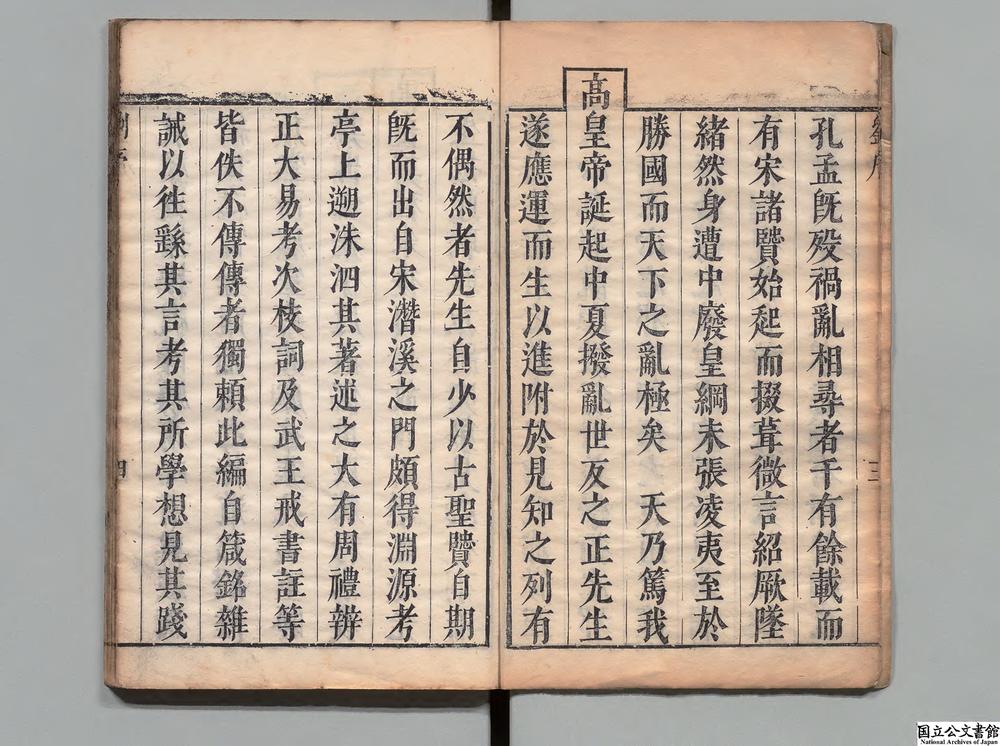 孔孟旣歿禍亂相尋者千有餘載而
有宋諸贒始起而掇葺微言紹厥墜
緒然身遭中廢皇綱未張凌夷至於
勝國而天下之亂極矣　天乃篤我
高皇帝誕起中夏撥亂世反之正先生
遂應運而生以進附於見知之列有
三
不偶然者先生自少以古聖贒自期
旣而出自宋潛溪之門頗得淵源考
亭上遡洙泗其著述之大有周禮辨
正大易考次枝詞及武王戒書註等
皆佚不傳傳者獨頼此編自箴銘雜
誡以徃繇其言考其所學想見其踐
四
国立公文書館
National Archives of Japan